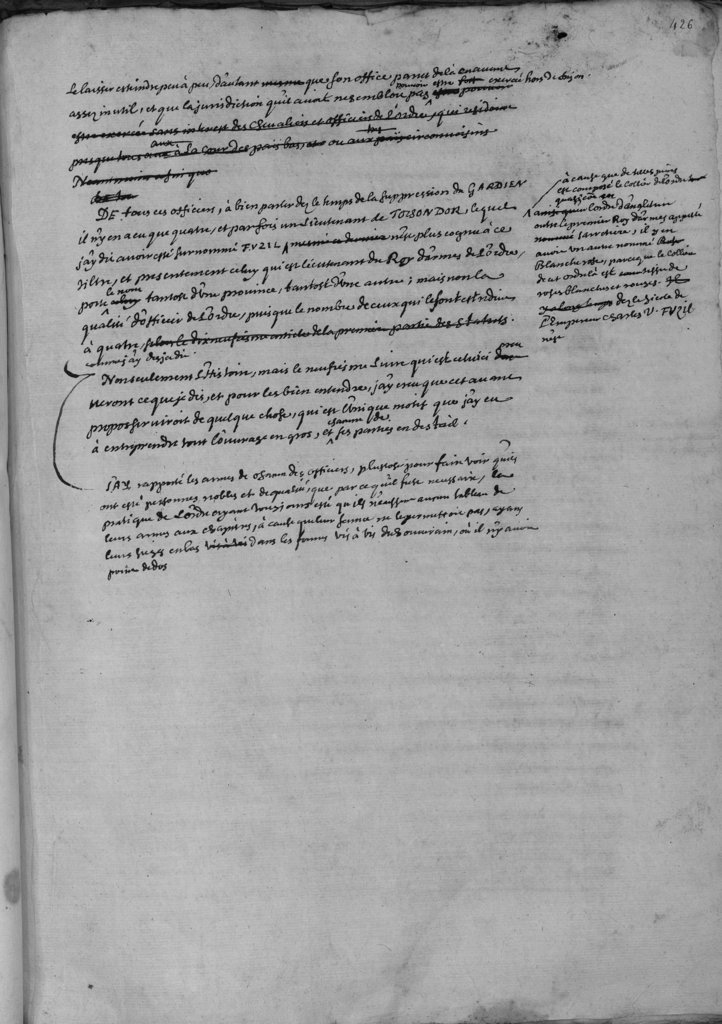 426
se laisser esteindre peu à peu, d'autant mesme que son office parut delà en avant
assez inutil, et que la jurisdiction qu'il avoit ne sembloit pas pouvoir estre exercée hors de
estre exercée sans interest des Chevaliers et officiers de l'ordre, qui residoient
presque tous aux à la cour des pais bas, ou aux pais circonvoisins
DE tous ces officiers, à bien parler dez le temps de la suppression du GARDIEN
il n'y en a eu que quatre, et par fois un Lieutenant de TOISON DOR, lequel
j'ay dit avoir esté surnommé FUZIL, mesme ce dernier n'est plus cognu à ce
tiltre, et presentement celuy qui est lieutenant du Roy d'armes de l'ordre,
porte le nom tantost d'une province, tantost d'une autre; mais non la
qualité d'officier de l'ordre, puisque le nombre de ceux qui le sont est reduit
à quatre, selon le dix neufiesme article de la premiere partie des Statuts.
comme j'ay desja dit.
à cause que de telles pieces
est composé le collier de l'ordre
ainsi qu'en l'ordre d'angleterre
outre le premier Roy d'armes appellé
nommé Jarretiere, il y en
avoit un autre nommé
Blanche rose, parce que le collier
de cet ordre là est
roses blanches et rouges.
de le siecle de
L'Empereur Charles V. FUZIL
n'est
Non seulement l'Histoire, mais le neufiesme Livre qui est cetuici
veront ce que je dis, et pour les bien entendre, j'ay creu que cet avant
propos serviroit de quelque chose, qui est l'unique motif que j'ay eu
à entreprendre tout l'ouvrage en gros, et chacune de ses parties en destail.
J'AY rapporté les armes de chacun des officiers, plustost pour faire voir qu'ils
ont esté personnes nobles et de qualité, que par ce qu'il fust necessaire, la
pratique de l'ordre ayant tousjours esté qu'ils n'eussent aucun tableau de
leurs armes aux chapitres, à cause que leur seance ne le permettoit pas, ayans
leurs sieges en bas vis à vis dans les formes vis à vis du Souverain, où il n'y avoit
point de dos